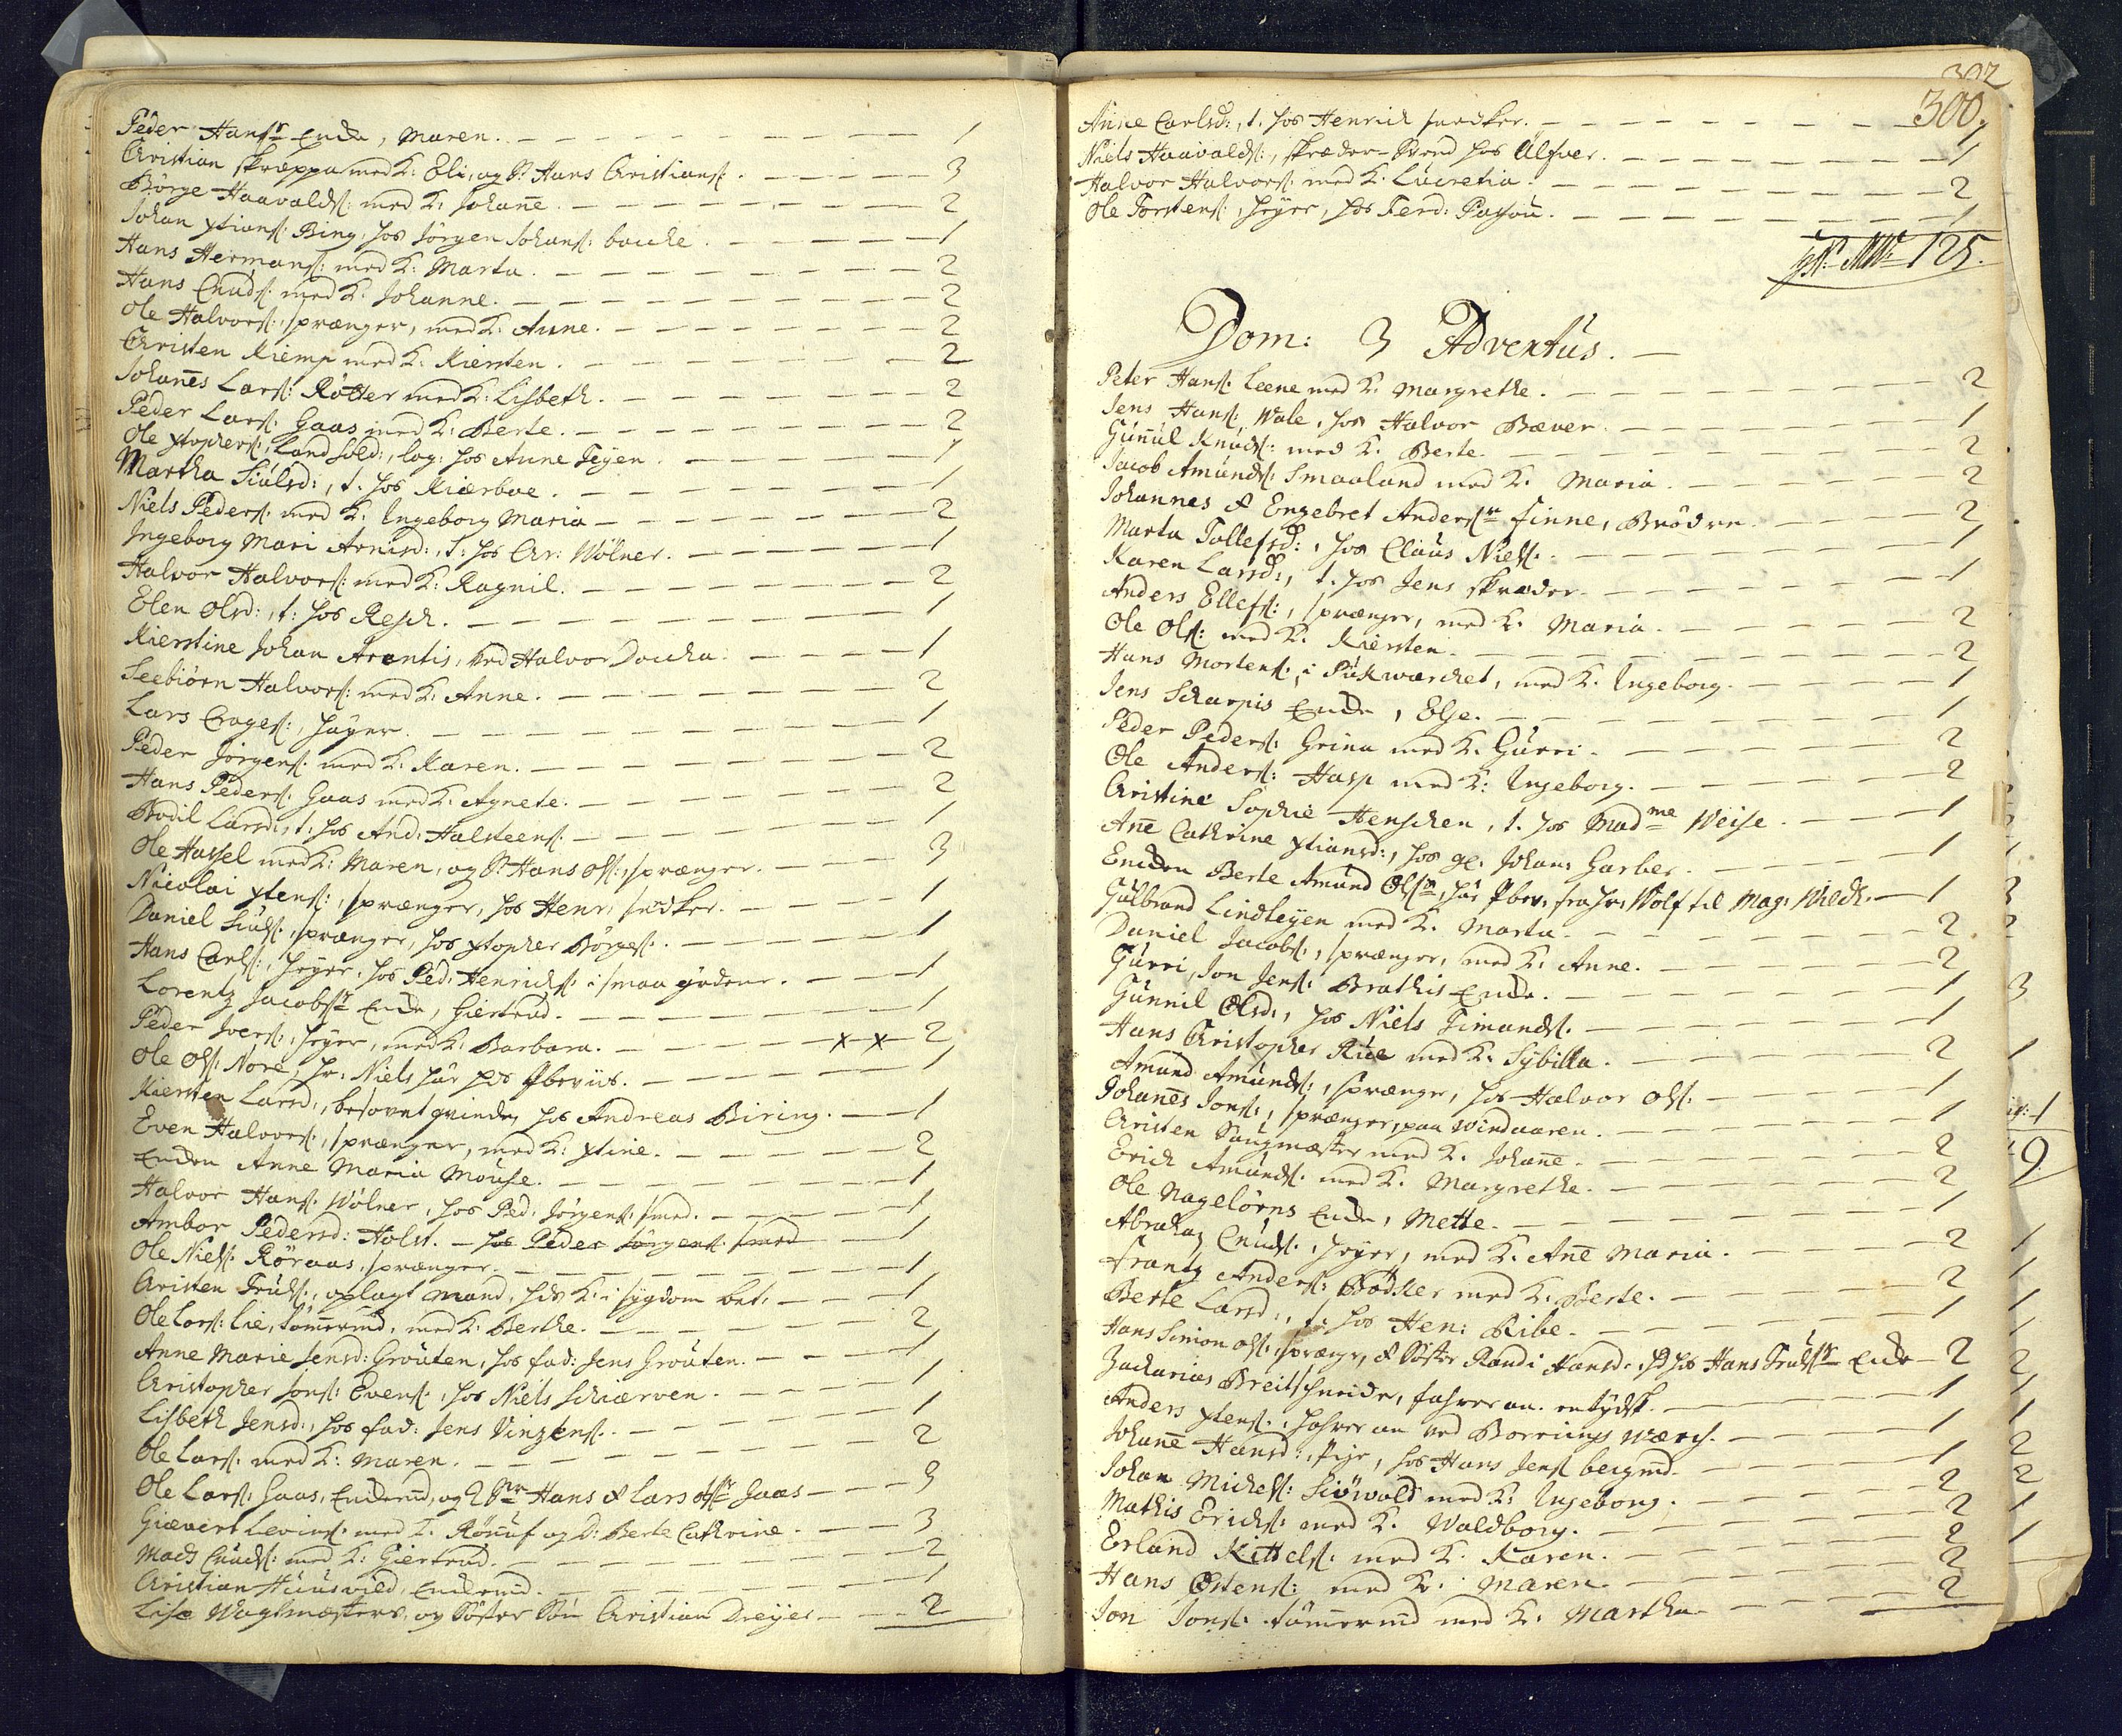 Peder Hansr Encke, Maren. 1
Christian skræppa med K: Eli, og S: Hans Christians: 3
Börge Haavalds: med K: Johañe. 2
Johan Xtians: Bing, hos Jörgen Johans: bache. 1
Hans Hermans: med K: Marta. 2
Hans Cnuds: med K: Johanne. 2
Ole Halvors: sprænger, med K: Anne. 2
Christen Kiemp med K: Kiersten. 2
Johañes Lars: Rötter med K: Lisbeth. 2
Peder Lars: Gaas med K: Berte. 2
Ole Xtophers: Land sold:, log: hos Anne Teyen. 1
Martha Siulsd:, t. hos Kiærboe. 1
Niels Peders: med K: Ingeborg Maria 2
Ingeborg Mari Arnisd:, t: hos Chr: Wölner. 1
Halvor Halvors: med K: Ragnil. 2
Elen Olsd:, t: hos Resch. 1
Kierstine Johan Arentis, ved Halvor Docka. 1
Seebiörn Halvors: med K: Anne. 2
Lars Crages:, heyer. 1
Peder Jörgens: med K: Karen. 2
Hans Peders: Gaas med K: Agnete. 2
Bodil Larsd:, t: hos And: Halsteens: 1
Ole Hassel med K: Maren, og S: Hans Ols:, sprænger. 3
Nicolai Xtens:, sprænger, hos Henr: snedker. 1
Daniel Siuls:, sprænger, hos Xtopher Börges: 1
Hans Carls:, heyer, hos Ped: Henrichs: i smaa gydene. 1
Lorentz Jacobsr Encke, Giertrud. 1
Peder Ivers:, heyer, med K: Barbara. x x 2
Ole Ols: Nore, hr: Niels har hds Pbeviis. 1
Kiersten Larsd:, besovnt qvinde, hos Andreas Biring. 1
Even Halvors:, sprænger, med K: Xtine. 2
Encken Anne Maria Mouse. 1
Halvor Hans: Wölner, hos Ped: Jörgens: smed. 1
Ambor Pedersd: Holst. hos Peder Jörgens: smed 1
Ole Niels: Röraas, sprænger. 1
Christen Truls:, oplagt mand, hds K: i sygdom bet: 1
Ole Lars: Lie, tömermd, med K: Berthe. 2
Anne Marie Jensd: Grouten, hos fad: Jens Grouten. 1
Christopher Jons: Evens:, hos Niels Schiærven. 1
Lisbeth Jensd:, hos fad: Jens Vinzens: 1
Ole Lars: med K: Maren. 2
Ole Lars: Gaas, Enckemd, og 2 Snr Hans & Lars Olsr Gaas 3
Giævert Levins: med K: Röñuf og D: Berte Cathrine. 3
Mads Cnuds: med K: Giertrud. 2
Christian Huusvild, Enckemd. 1
Lise Wagtmesters, og Söster Sön Christian Dreyer 2
302
300.
Anne Carlsd:, t. hos Henrich snedker. 1
Niels Haavalds:, skræder-Svend hos Ulfver. 1
Halvor Halvors: med K: Lucretia. 2
Ole Torstens:, heyer, hos Ferd: Passou. 1
125.
Dom: 3 Adventus.
Peter Hans: Leene med K: Margrethe. 2
Jens Hans: Wale, hos Halvor Bæver. 1
Guñul Knuds: med K: Berte. 2
Jacob Amunds: Smaaland med K: Maria. 2
Johannes & Engebret Andersr Finne, Brödre. 2
Marta Tollefsd:, hos Claus Niels: 1
Karen Larsd:, t. hos Jens skræder. 1
Anders Ellefs:, sprænger, med K: Maria. 2
Ole Ols: med K: Kiersten. 2
Hans Mortens:, i Pukwærchet, med K: Ingeborg. 1
Jens Scharpis Encke, Else. 1
Peder Peders: Grina med K: Gurri. 2
Ole Anders: Hasp med K: Ingeborg. 2
Christine Sophie Henschen, t. hos Madme Weise 1
Añe Cathrine Xtiansd:, hos gl: Johan: Garber. 1
Encken Berte Amund Olsr, har Pbev: fra hr: Wolf til Mag: Wildh. 1
Gulbrand Lindleyen med K: Marta. 2
Daniel Jacobs:, sprænger, med K: Anne. 2
Gurri, Jon Jens: Brathis Encke. 1
Gunnil Olsd:, hos Niels Timands: 1
Hans Christopher Rüe med K: Sybilla. 2
Amund Amunds:, sprænger, hos Halvor Ols: 1
Johañes Jons:, sprænger, paa Windoaren. 1
Christen Saugmester med K: Johañe. 2
Erich Amunds: med K: Margrethe. 2
Ole Nagelörns Encke, Mette. 1
Abraham Cnuds:, heyer, med K: Añe Maria. 2
Frantz Anders: Bödker med K: Berte. 2
Berte Larsd:, t: hos Hen: Ribe. 1
Hans Simon Ols:, sprænger, & Söster Randi Hansd:, hos Hans Trulsr Encke 2
Zacharias Breitschneider, fahrer an. en tydsk. 1
Anders Xtens:, fahrer an ved Borrings wærch. 1
Johañe Hansd:, Pige, hos Hans Jens: bergmd. 1
Johan Michels: Siöwold med K: Ingeborg. 2
Mathis Erichs: med K: Waldborg. 2
Erland Kittels: med K: Karen. 2
Hans Östens: med K: Maren. 2
Jon Jons: tömermd med K: Martha 2